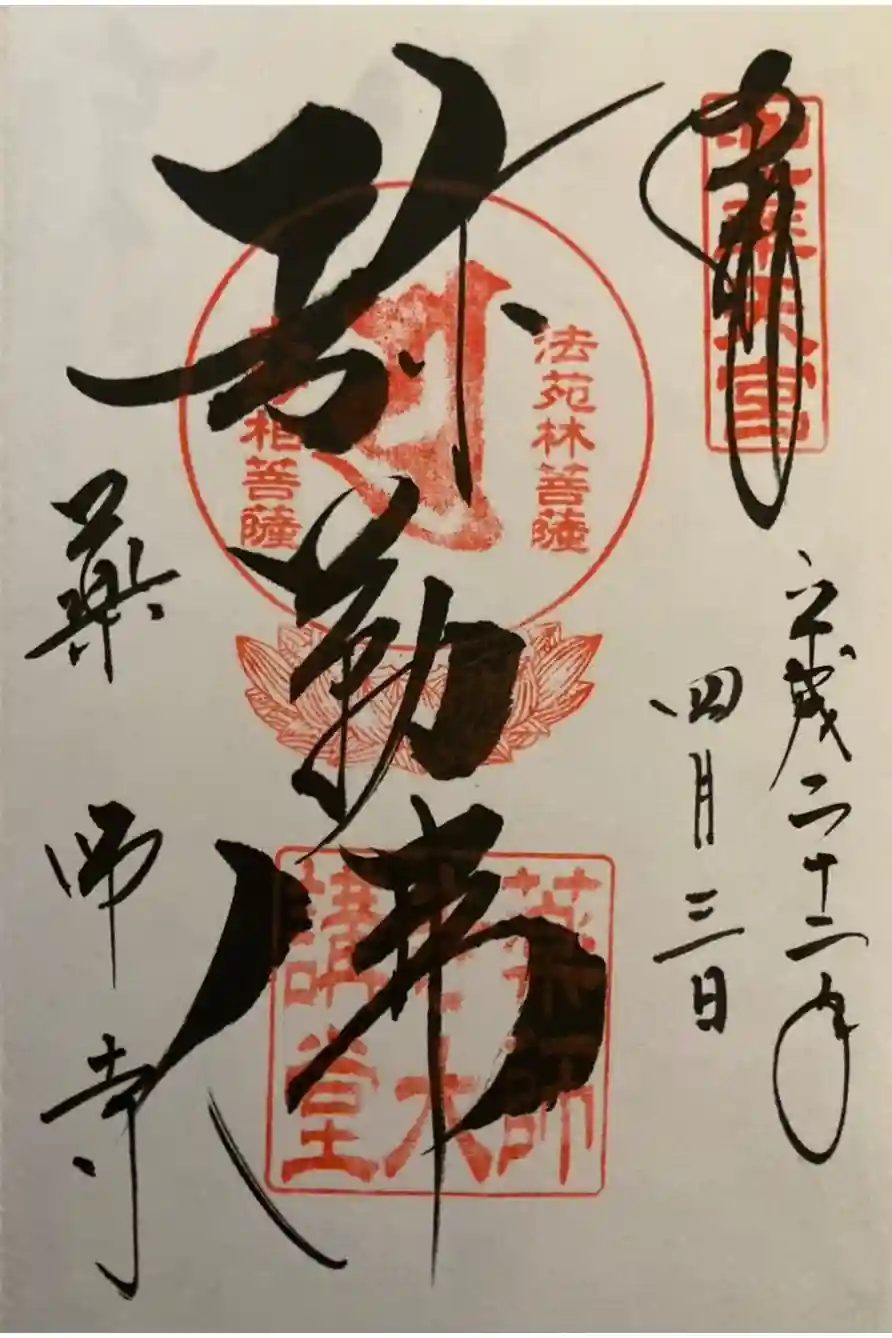 奉拝
平成二十二年
四月三日
法苑林菩薩
相菩薩
弥勒佛
薬師
寺大
講堂
薬師寺